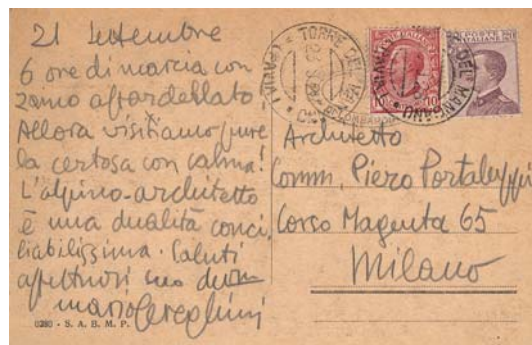 21 settembre
6 ore di marcia con
zaino affardellato.
Allora visitiamo pure
la certosa con calma!
L'alpino-architetto
è una dualità conci,
liabilissima. Saluti
affettuosi suo
mario Cereghini
0280 - S. A. B. M. P.
TORRE DEL MANGANO
(PAVIA)
POSTE ITALIANE
10
Architetto
Comm, Piero Portaluppi
Corso Magenta 65
Milano